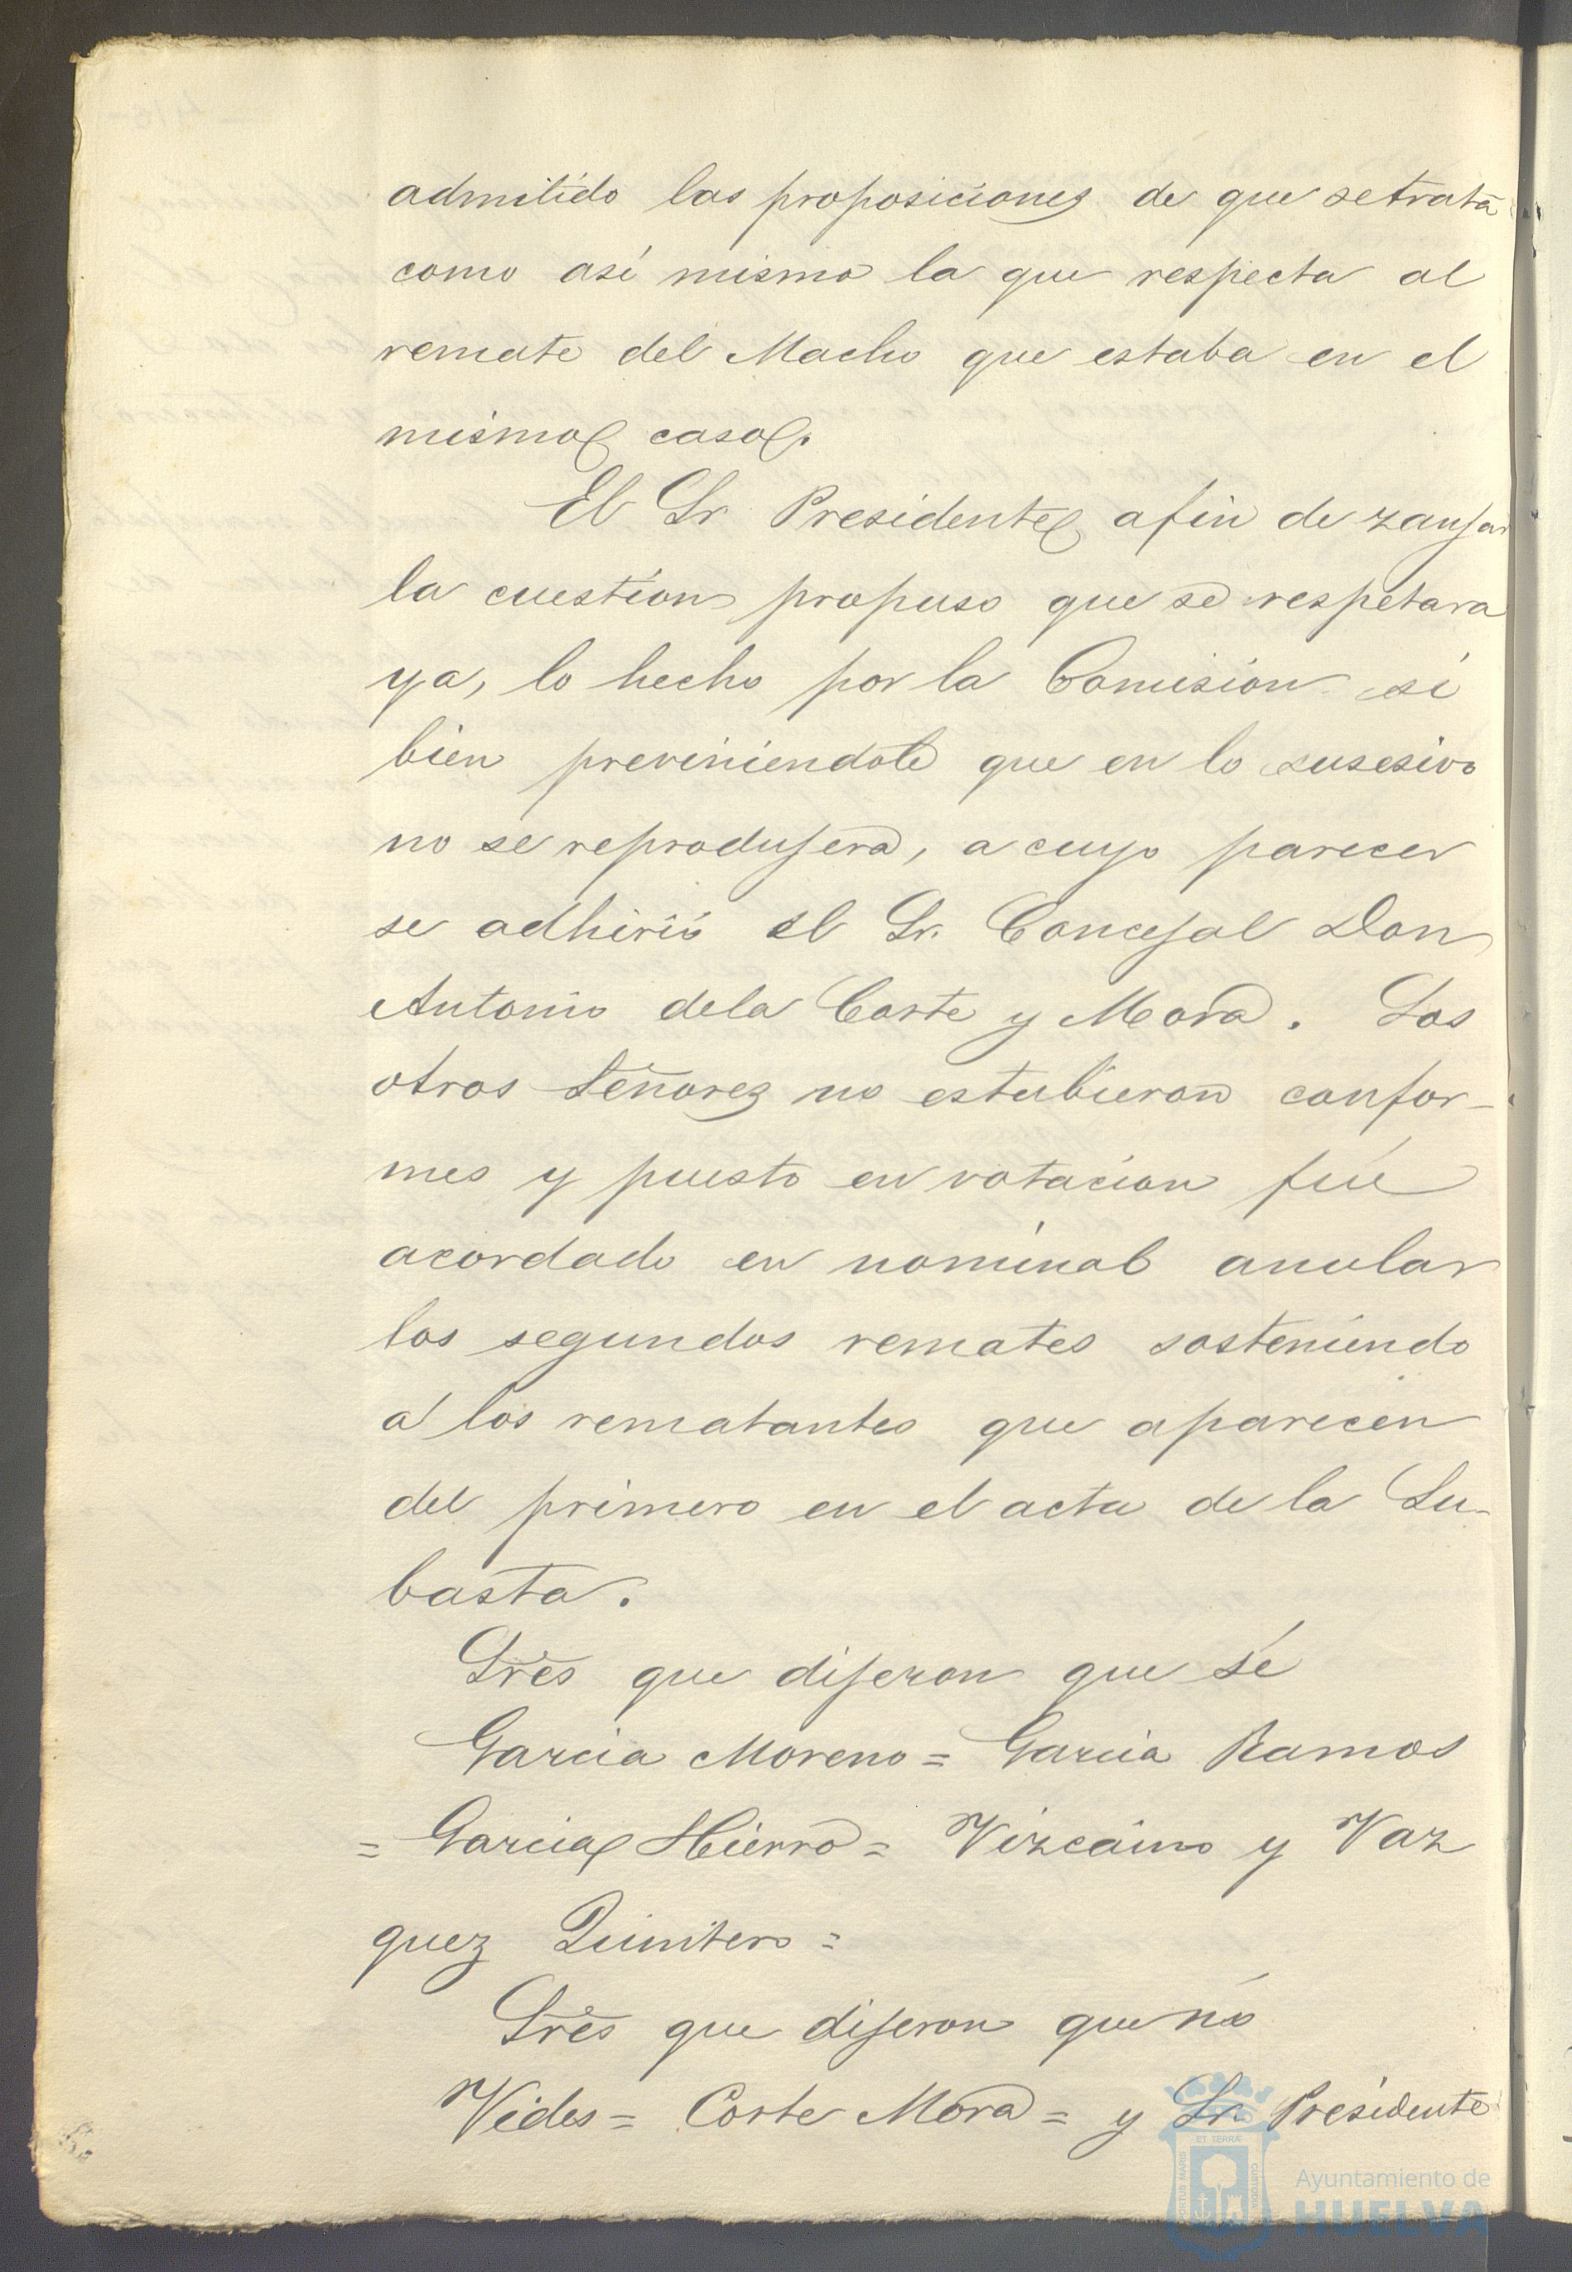 admitido las proposiciones de que se trata
como así mismo la que respecta al
remate del Macho que estaba en el
mismo caso.
El Sr Presidente afin de zanjar
la cuestion propuso que se respetara
ya, lo hecho por la Comision si
bien previniendole que en lo susesivo
no se reprodujera, a cuyo parecer
se adhirió el Sr. Concejal Don
Antonio dela Corte y Mora. Los
otros Señorez no estubieron confor-
mes y puesto en votacion fué
acordado en nominal anular
los segundos remates sosteniendo
a los rematantes que aparecen
del primero en el acta de la Su-
basta.
Sres que dijeron que sí
Garcia Moreno = Garcia Ramos
= Garcia Hierro = Vizcaino y Vaz
quez Quintero =
Sres que dijeron que nó
Vides = Corte Mora = y Sr. Presidente
PORTUS MARIS
ET TERRÆ
CUSTODIA
Ayuntamiento de
HUELVA